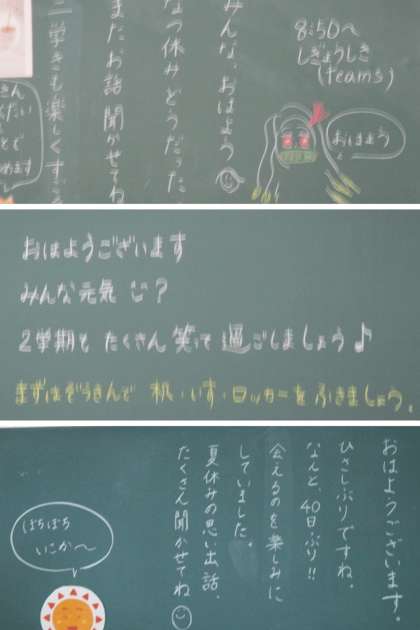 みんな、おはよう
なつ休みどうだった
またお話聞かせてね
二学きも楽しくすご
8:50〜
しぎょうしき
(teams)
おはよう
おはようございます
みんな元気
2学期も たくさん笑って過ごしましょう♪
まずはぞうきんで 机・いす・ロッカーをふきましょう。
おはようございます。
ひさしぶりですね。
なんと、40日ぶり!!
会えるのを楽しみに
していました。
夏休みの思い出話、
たくさん聞かせてね
ぼちぼち
いこか〜